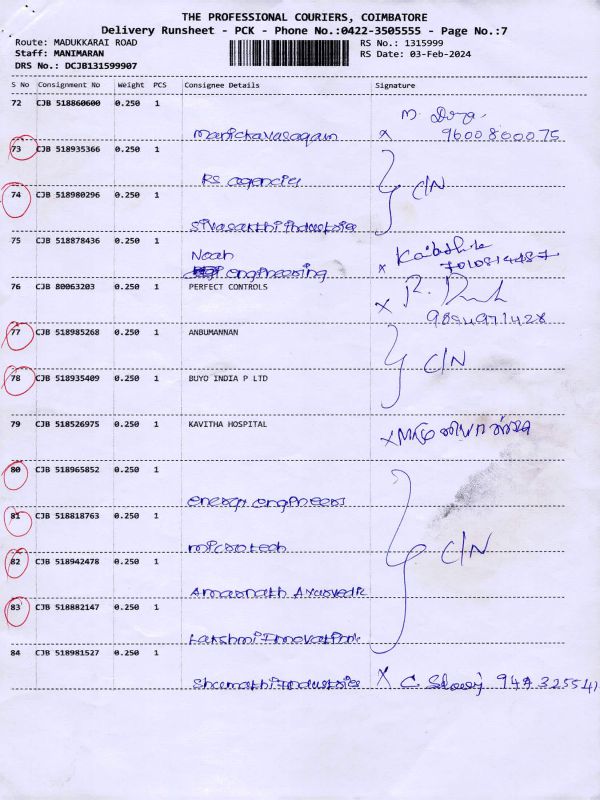 THE PROFESSIONAL COURIERS, COIMBATORE
Delivery Runsheet - PCK - Phone No.:0422-3505555 - Page No.:7
Route: MADUKKARAI ROAD RS No.: 1315999
Staff: MANIMARAN RS Date: 03-Feb-2024
DRS No.: DCJB131599907
S No Consignment No Weight PCS Consignee Details Signature
72 CJB 518860600 0.250 1
Manickavasagam x 9600800075
73 CJB 518935366 0.250 1
RS agencies C/N
74 CJB 518980296 0.250 1
Sivasakthi industries
75 CJB 518878436 0.250 1
Noah
engineering x
76 CJB 80063203 0.250 1 PERFECT CONTROLS
x 9894971428
77 CJB 518985268 0.250 1 ANBUMANNAN
C/N
78 CJB 518935409 0.250 1 BUYO INDIA P LTD
79 CJB 518526975 0.250 1 KAVITHA HOSPITAL
x
80 CJB 518965852 0.250 1
energy engineers
81 CJB 518818763 0.250 1
microtech C/N
82 CJB 518942478 0.250 1
Amarnath Ayurvedic
83 CJB 518882147 0.250 1
Lakshmi Innovations
84 CJB 518981527 0.250 1
Shumathi Industries x C.